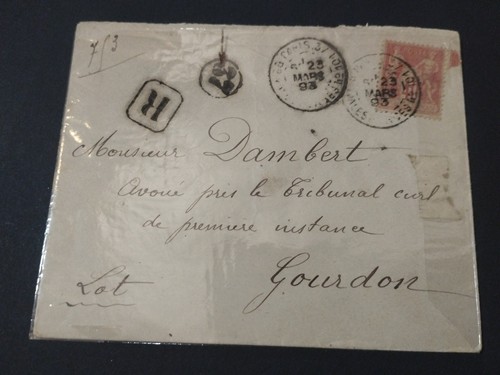 753
PARIS 37
23
MARS
93
23
MARS
93
R
Monsieur Dambert
Avoué près le Tribunal civil
de première instance
Gourdon
Lot